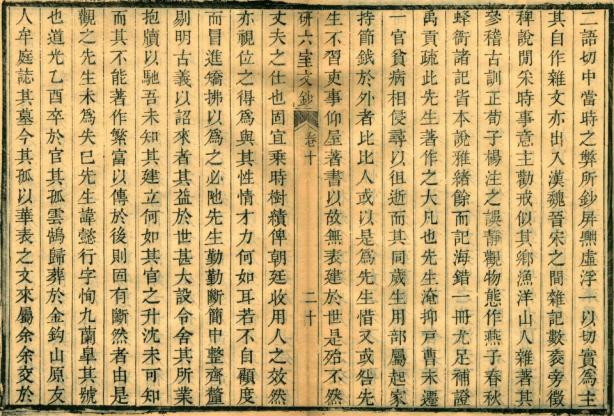 二語切中當時之弊所鈔屏黜虛浮一以切實爲主
其自作雜文亦出入漢魏晉宋之間雜記數㢧旁徵
稗說閒朱時事意主勸戒似其鄉漁洋山人雜著其
參稽古訓正荀子楊注之誤靜觀物態作燕子春秋
蜂衙諸記皆本說雅緒餘而記海錯一冊尤足補證
禹貢疏此先生著作之大凡也先生淹抑戸曹未遷
一官貧病相侵尋以徂逝而其同歲生用部屬起家
持節鉞於外者比比人或以是爲先生惜又或咎先
生不習吏事仰屋著書以故無表建於世是殆不然
研六室文鈔
卷十
二十
丈夫之仕也固宜乘時樹績俾朝廷收用人之效然
亦視位之得爲與其性情才力何如耳若不自顧度
而冒進矯拂以爲之必阤先生勤勤斷簡中整齊釐
剔明古義以詔來者其益於世甚大設令舍其所業
抱牘以馳吾未知其建立何如其官之升沈未可知
而其不能著作繁富以傳於後則固有斷然者由是
觀之先生未爲失已先生諱懿行字恂九蘭皐其號
也道光乙酉卒於官其孤雲鵠歸葬於金鉤山原友
人牟庭誌其墓今其孤以華表之文來屬余余交於